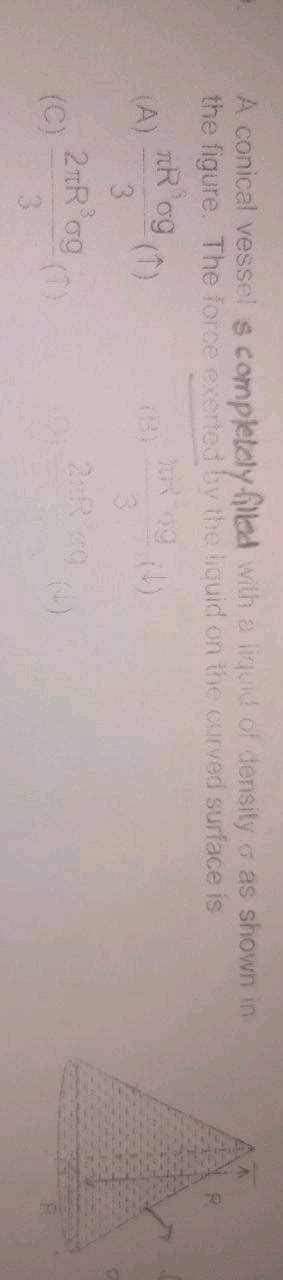 A conical vessel is completely filled with a liquid of density σ as shown in
the figure. The force exerted by the liquid on the curved surface is
(A) πR³σg/3 (↑) (B) πR³σg/3 (↓)
(C) 2πR³σg/3 (↑) (D) 2πR³σg/3 (↓)
R
R